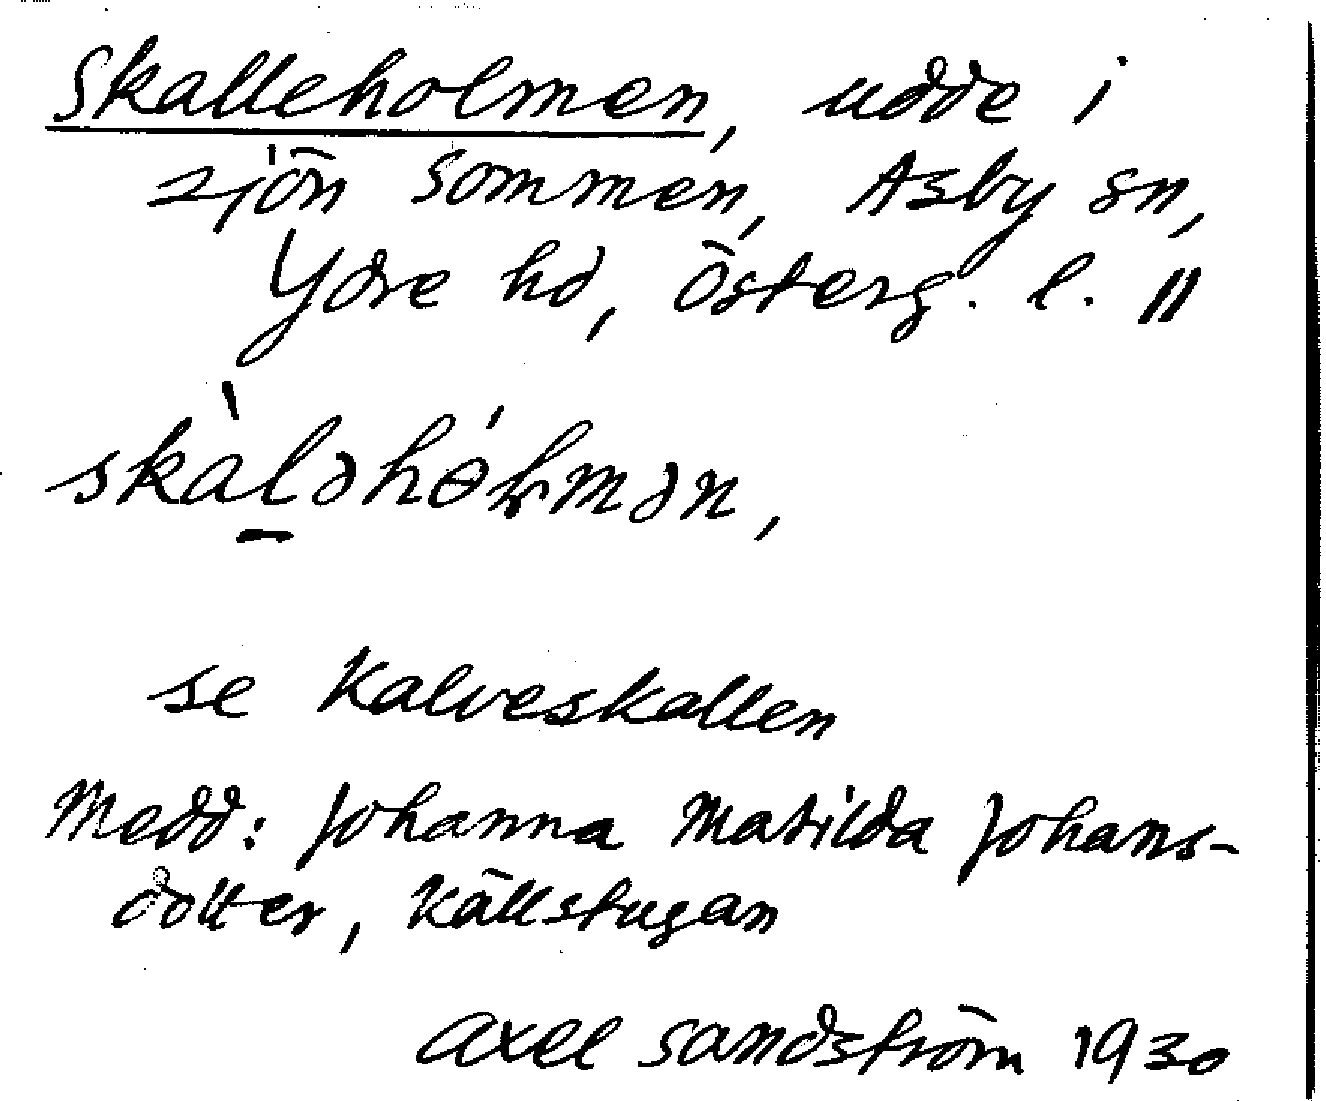 Skalleholmen, udde i
sjön Sommen, Asby sn,
Ydre hd, Österg. l. 11
skàl̠əhɵ́ɫmən,
se Kalveskallen
Medd: Johanna Matilda Johans-
dotter, Källstugan
Axel Sandström 1930